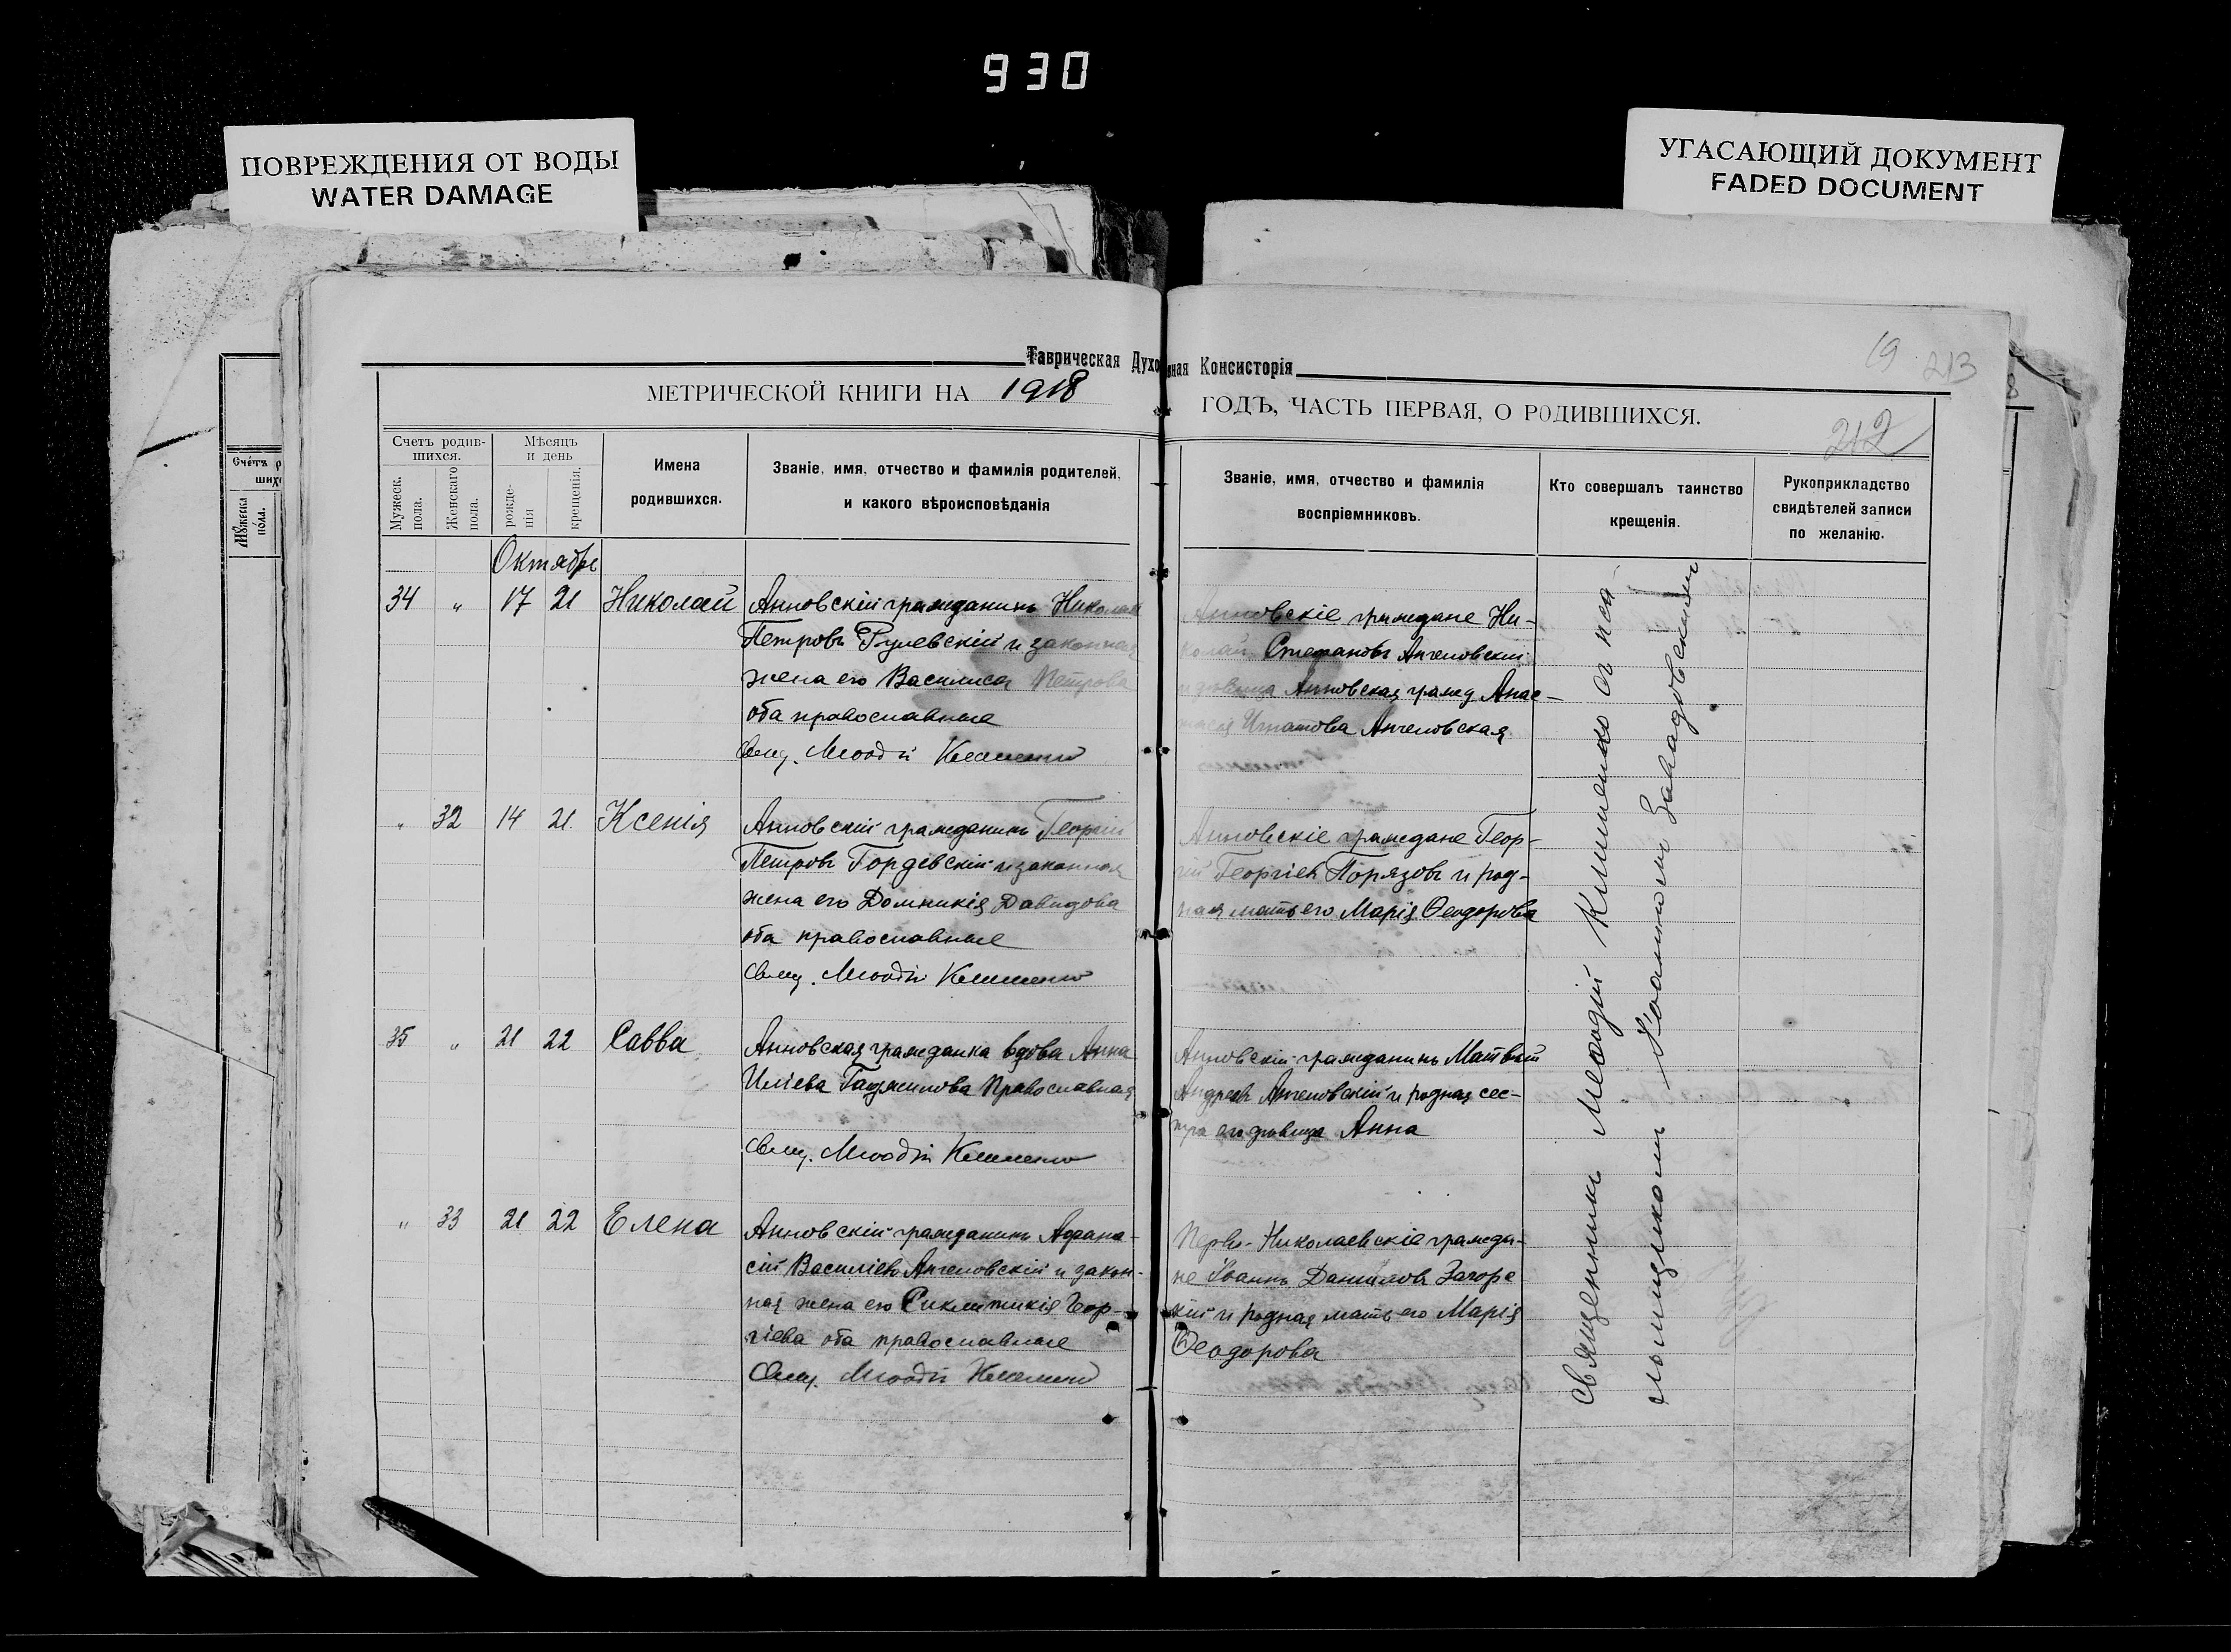 930
ПОВРЕЖДЕНИЯ ОТ ВОДЫ
WATER DAMAGE
УГАСАЮЩИЙ ДОКУМЕНТ
FADED DOCUMENT
Таврическая Духовная Консисторія
19 213
МЕТРИЧЕСКОЙ КНИГИ НА 1918
ГОДЪ, ЧАСТЬ ПЕРВАЯ, О РОДИВШИХСЯ.
212
Счетъ родив-
шихся.
Мужеск.
пола.
Женскаго
пола.
Мѣсяцъ
и день
рожде-
нія
крещенія.
Имена
родившихся.
Званіе, имя, отчество и фамилія родителей,
и какого вѣроисповѣданія
Званіе, имя, отчество и фамилія
воспріемниковъ.
Кто совершалъ таинство
крещенія.
Рукоприкладство
свидѣтелей записи
по желанію.
Октябрь
34 " 17 21 Николай
Анновскій гражданинъ Николай
Петровъ и законная
жена его Василиса Петрова
оба православные
Свящ. Меѳодій Клименко
Анновскіе граждане Ни-
колай Стефановъ Ангеловскій
и девица Анновская гражд Анас-
тасія Игнатова Ангеловская
" 32 14 21 Ксенія
Анновскій гражданинъ Георгій
Петровъ Гордевскій и законная
жена его Домникія Давидова
оба православные
Свящ. Меѳодій Клименко
Анновскіе граждане Геор-
гій Георгіев Порязовъ и род-
ная мать его Марія Ѳеодорова
35 " 21 22 Савва
Анновская гражданка вдова Анна
Иліева Православная
Свящ. Меѳодій Клименко
Анновскій гражданинъ Матвѣй
Андреевъ Ангеловскій и родная сес-
тра его девица Анна
" 33 21 22 Елена
Анновскій гражданинъ Афана-
сій Василіевъ Ангеловскій и закон-
ная жена его Синклитикія Геор-
гіева оба православные
Свящ. Меѳодій Клименко
Перво-Николаевскіе гражда-
не Іоаннъ Даниловъ Загорс
кій и родная мать его Марія
Ѳеодорова
Священникъ Меѳодій Клименко съ пса-
ломщикомъ Іоанномъ Завадовскимъ